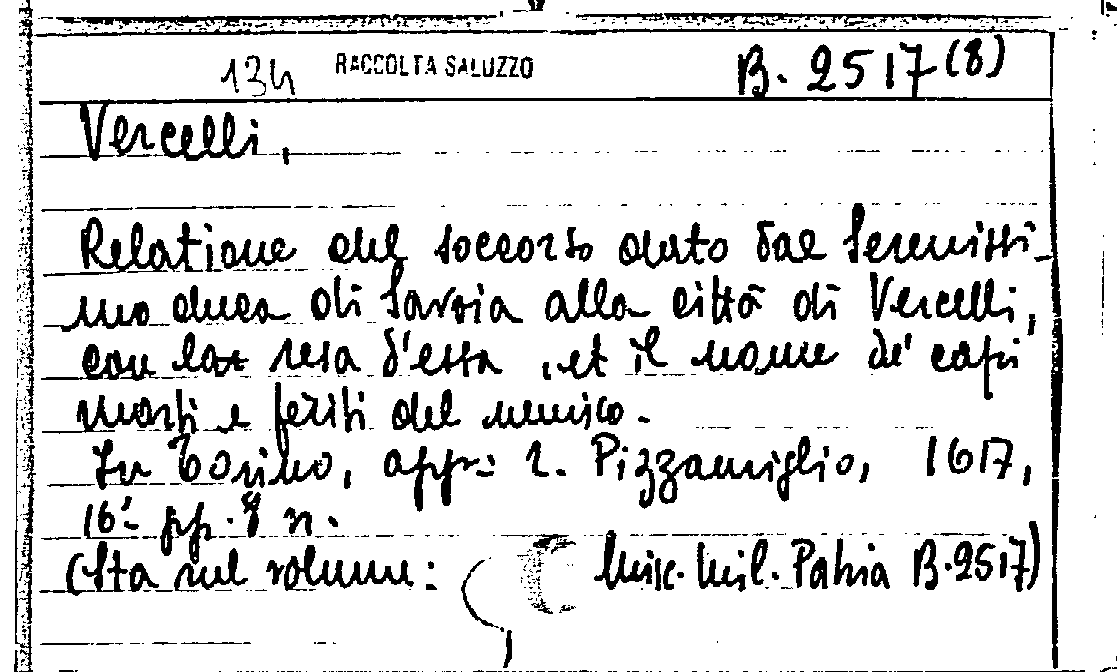 134 RACCOLTA SALUZZO B. 2517 (8)
Vercelli,
Relatione del soccorso dato dal Serenissi-
mo duca di Savoia alla città di Vercelli,
con la resa d'essa, et il nome de' capi
morti e feriti del nemico.
In Torino, app: L. Pizzamiglio, 1617,
16° pp. 8 n.
(Sta nel volume: Misc. Mil. Patria B.2517)